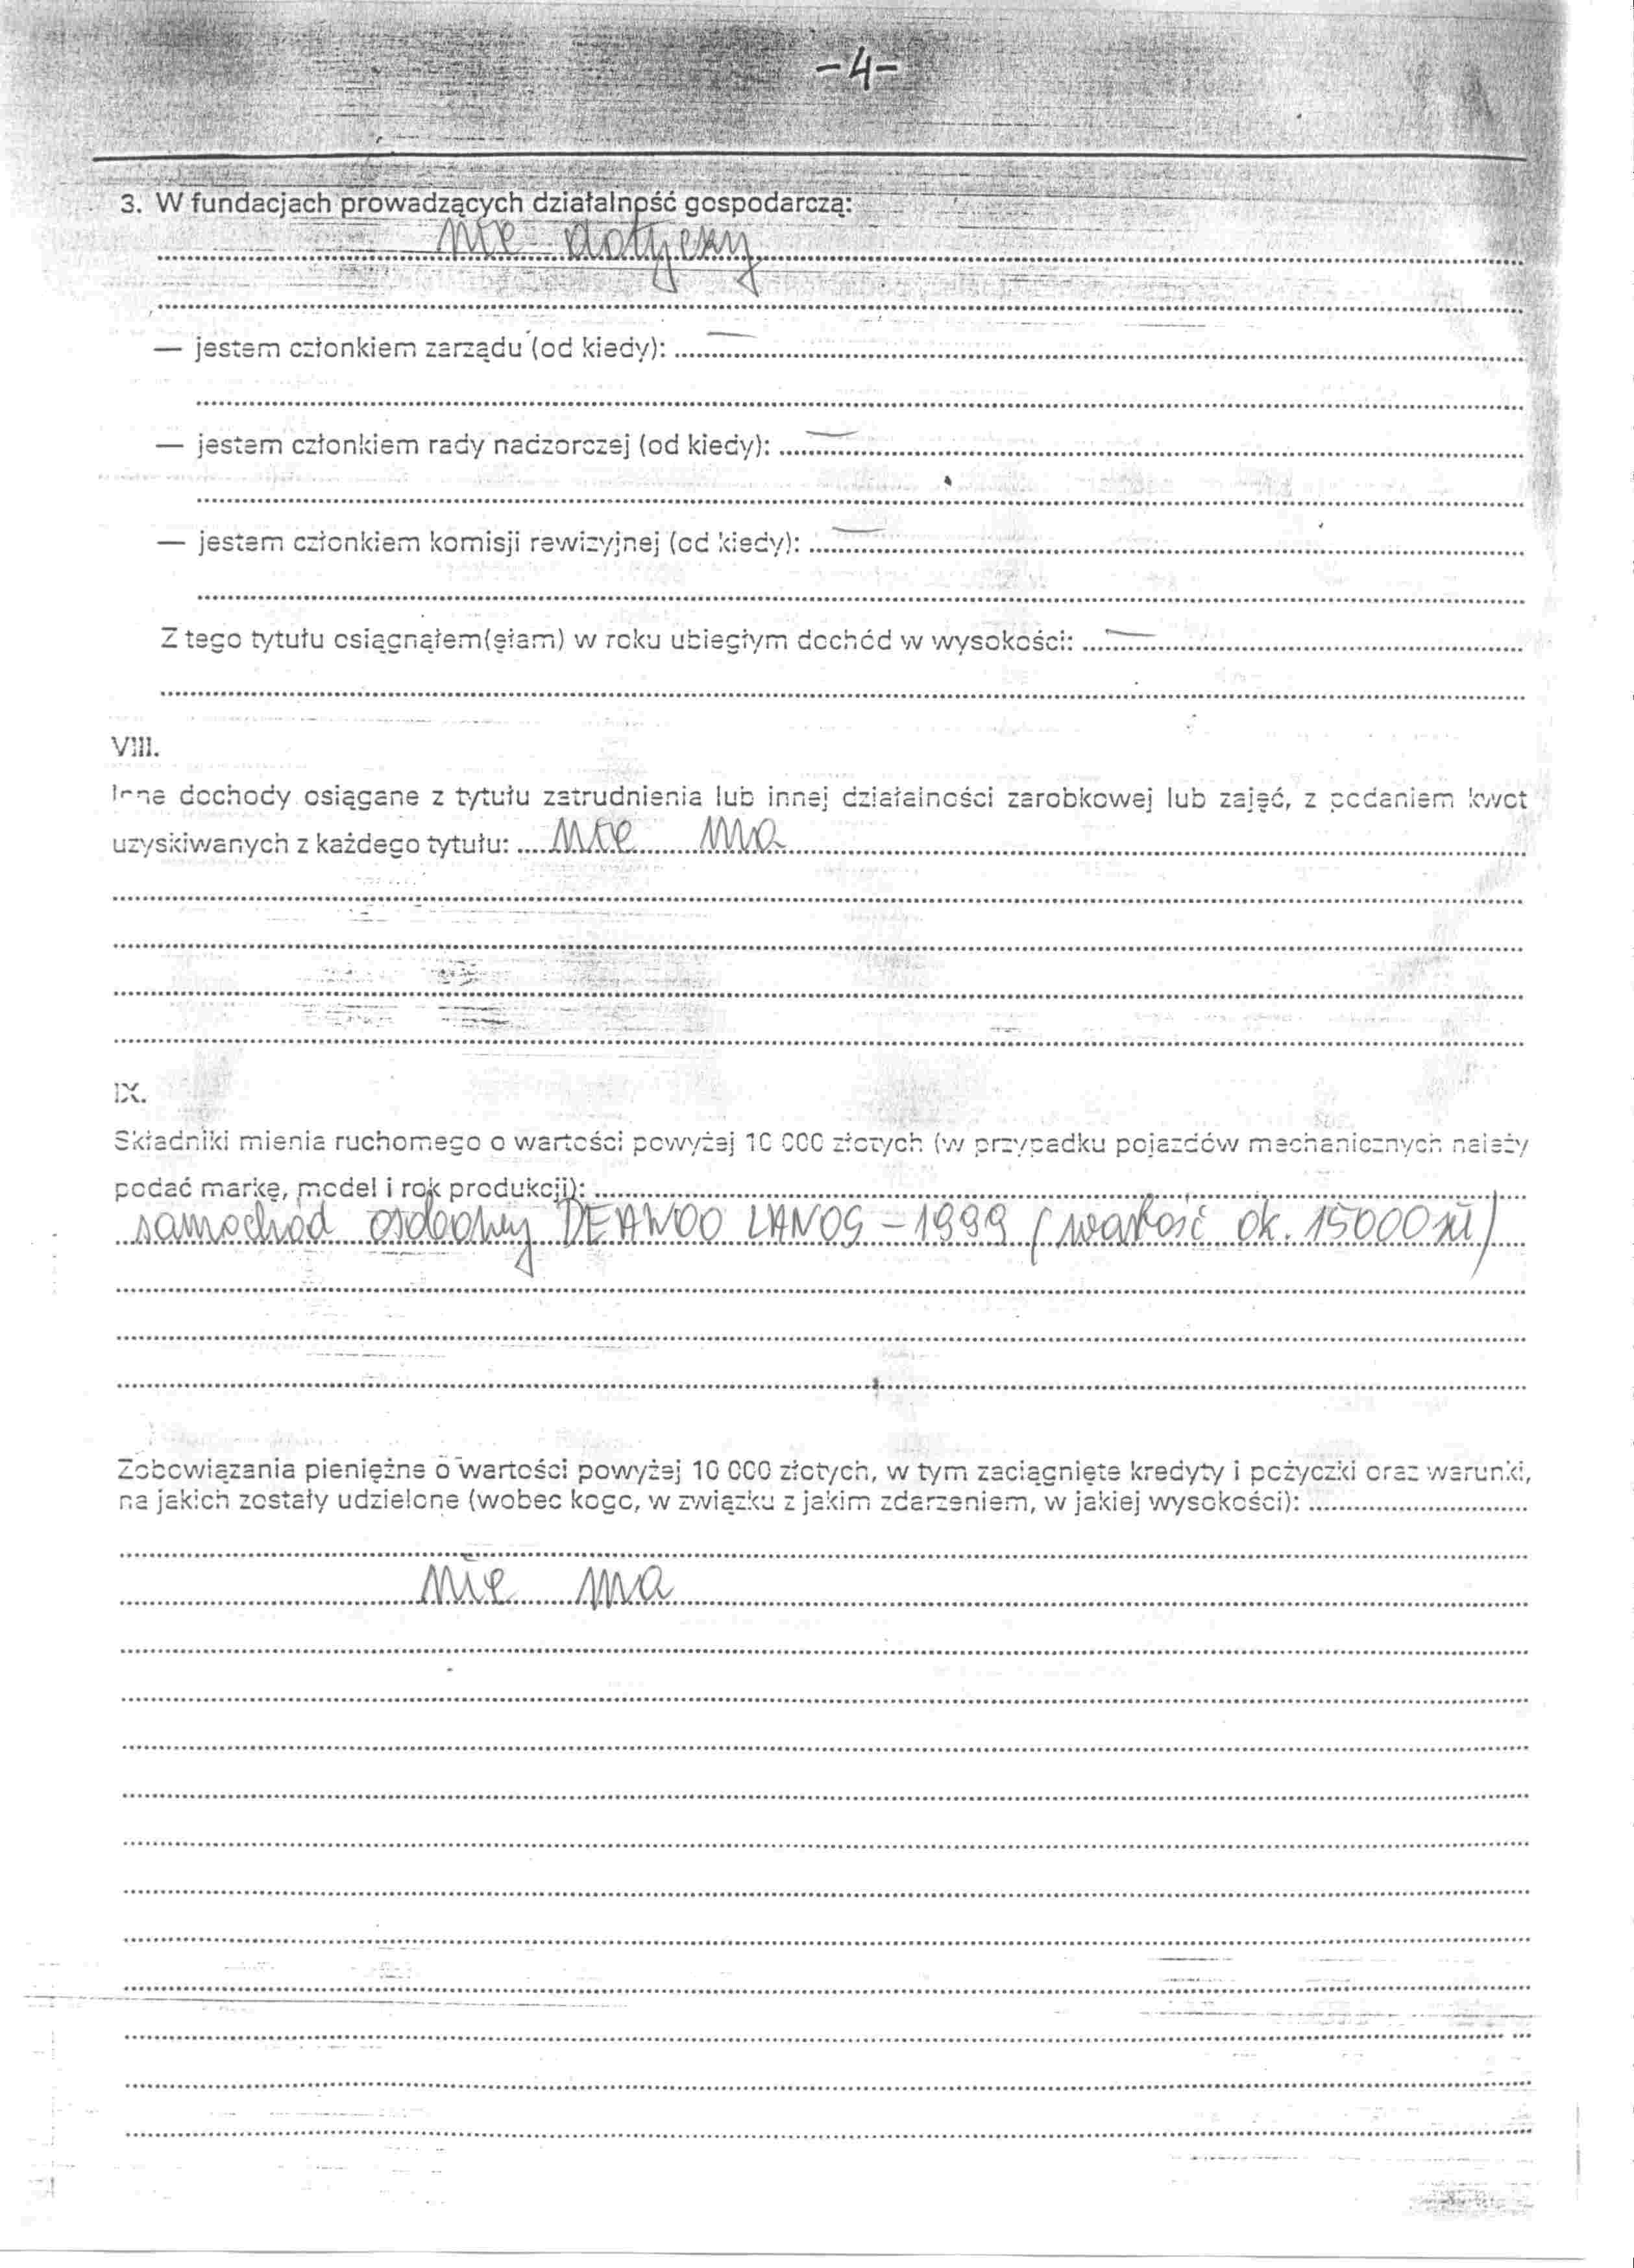 -4-
3. W fundacjach prowadzących działalność gospodarczą:
nie dotyczy
— jestem członkiem zarządu (od kiedy): —
— jestem członkiem rady nadzorczej (od kiedy): —
— jestem członkiem komisji rewizyjnej (od kiedy): —
Z tego tytułu osiągnąłem(ęłam) w roku ubiegłym dochód w wysokości: —
VIII.
Inne dochody osiągane z tytułu zatrudnienia lub innej działalności zarobkowej lub zajęć, z podaniem kwot
uzyskiwanych z każdego tytułu: nie ma
IX.
Składniki mienia ruchomego o wartości powyżej 10 000 złotych (w przypadku pojazdów mechanicznych należy
podać markę, model i rok produkcji):
samochód osobowy DEAWOO LANOS - 1999 (wartość ok. 15000 zł)
Zobowiązania pieniężne o wartości powyżej 10 000 złotych, w tym zaciągnięte kredyty i pożyczki oraz warunki,
na jakich zostały udzielone (wobec kogo, w związku z jakim zdarzeniem, w jakiej wysokości):
nie ma